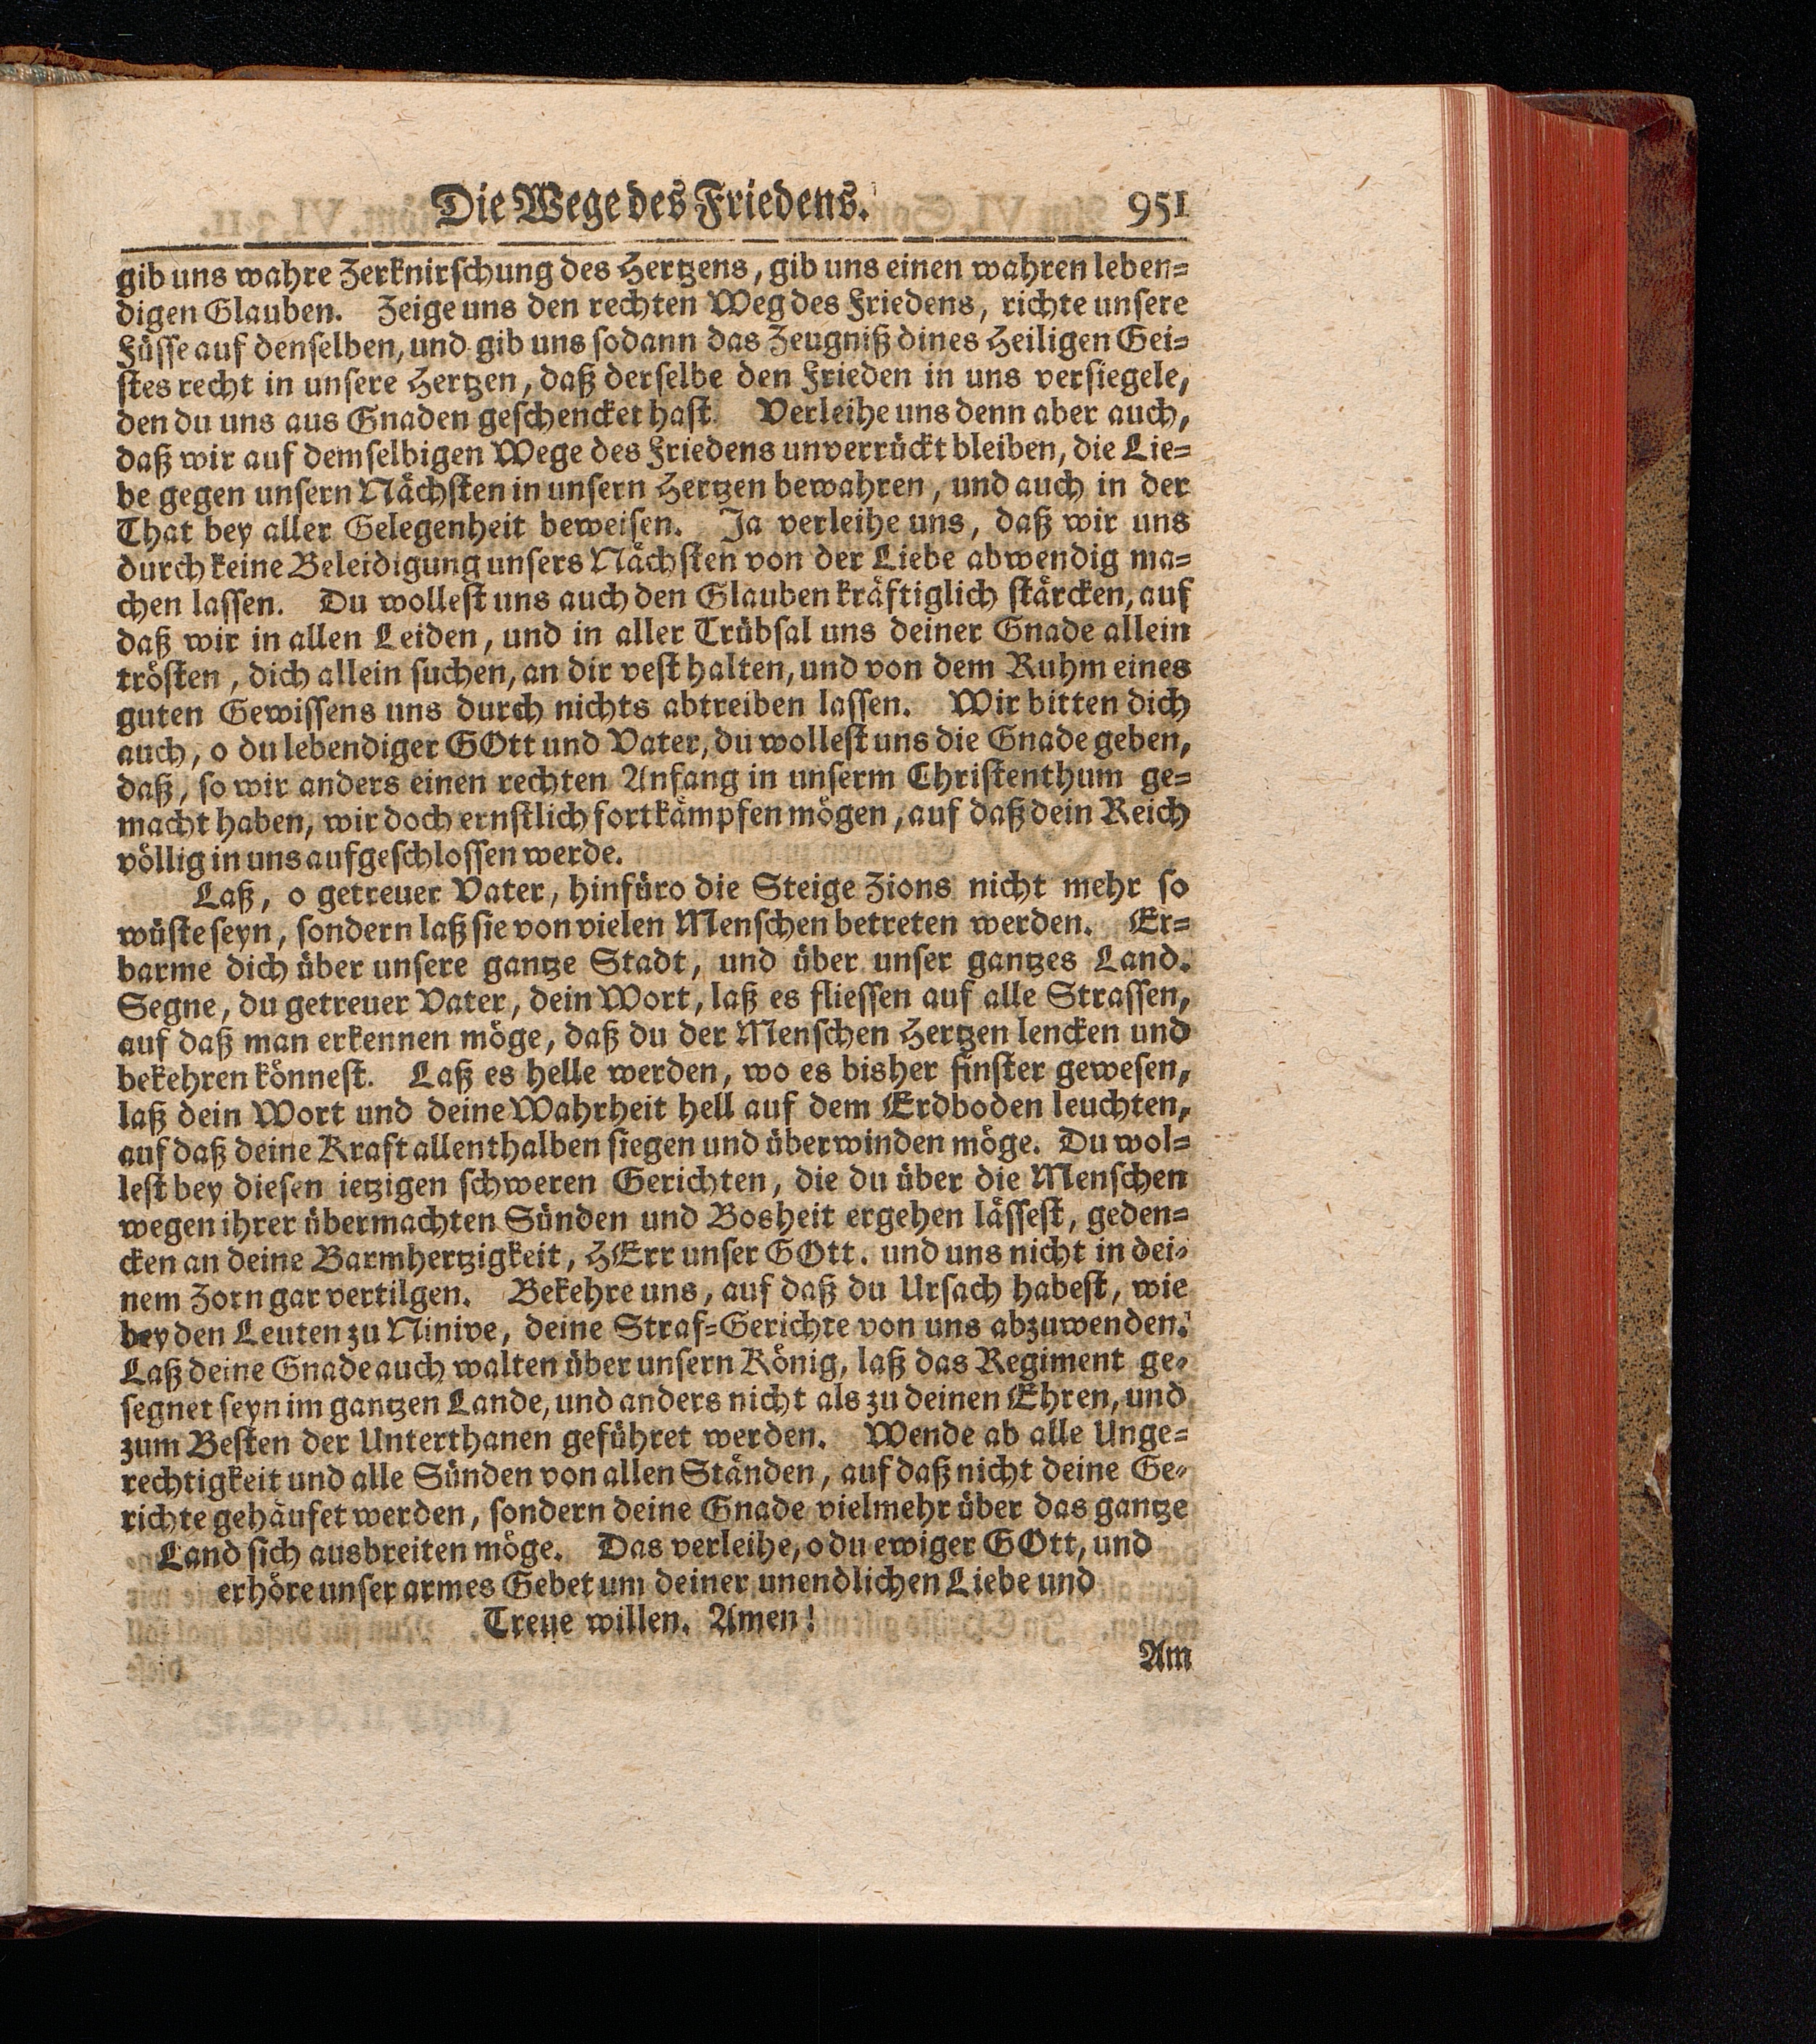 Die Wege des Friedens. 951
gib uns wahre Zerknirschung des Hertzens, gib uns einen wahren leben=
digen Glauben. Zeige uns den rechten Weg des Friedens, richte unsere
Füsse auf denselben, und gib uns sodann das Zeugniß dines Heiligen Gei=
stes recht in unsere Hertzen, daß derselbe den Frieden in uns versiegele,
den du uns aus Gnaden geschencket hast. Verleihe uns denn aber auch,
daß wir auf demselbigen Wege des Friedens unverrückt bleiben, die Lie=
be gegen unsern Nächsten in unsern Hertzen bewahren, und auch in der
That bey aller Gelegenheit beweisen. Ja verleihe uns, daß wir uns
durch keine Beleidigung unsers Nächsten von der Liebe abwendig ma=
chen lassen. Du wollest uns auch den Glauben kräftiglich stärcken, auf
daß wir in allen Leiden, und in aller Trübsal uns deiner Gnade allein
trösten, dich allein suchen, an dir vest halten, und von dem Ruhm eines
guten Gewissens uns durch nichts abtreiben lassen. Wir bitten dich
auch, o du lebendiger GOtt und Vater, du wollest uns die Gnade geben,
daß, so wir anders einen rechten Anfang in unserm Christenthum ge=
macht haben, wir doch ernstlich fortkämpfen mögen, auf daß dein Reich
völlig in uns aufgeschlossen werde.
Laß, o getreuer Vater, hinfüro die Steige Zions nicht mehr so
wüste seyn, sondern laß sie von vielen Menschen betreten werden. Er=
barme dich über unsere gantze Stadt, und über unser gantzes Land.
Segne, du getreuer Vater, dein Wort, laß es fliessen auf alle Strassen,
auf daß man erkennen möge, daß du der Menschen Hertzen lencken und
bekehren könnest. Laß es helle werden, wo es bisher finster gewesen,
laß dein Wort und deine Wahrheit hell auf dem Erdboden leuchten,
auf daß deine Kraft allenthalben siegen und überwinden möge. Du wol=
lest bey diesen ietzigen schweren Gerichten, die du über die Menschen
wegen ihrer übermachten Sünden und Bosheit ergehen lässest, geden=
cken an deine Barmhertzigkeit, HErr unser GOtt. und uns nicht in dei=
nem Zorn gar vertilgen. Bekehre uns, auf daß du Ursach habest, wie
bey den Leuten zu Ninive, deine Straf=Gerichte von uns abzuwenden.
Laß deine Gnade auch walten über unsern König, laß das Regiment ge=
segnet seyn im gantzen Lande, und anders nicht als zu deinen Ehren, und
zum Besten der Unterthanen geführet werden. Wende ab alle Unge=
rechtigkeit und alle Sünden von allen Ständen, auf daß nicht deine Ge=
richte gehäufet werden, sondern deine Gnade vielmehr über das gantze
Land sich ausbreiten möge. Das verleihe, o du ewiger GOtt, und
erhöre unser armes Gebet um deiner unendlichen Liebe und
Treue willen. Amen!
Am